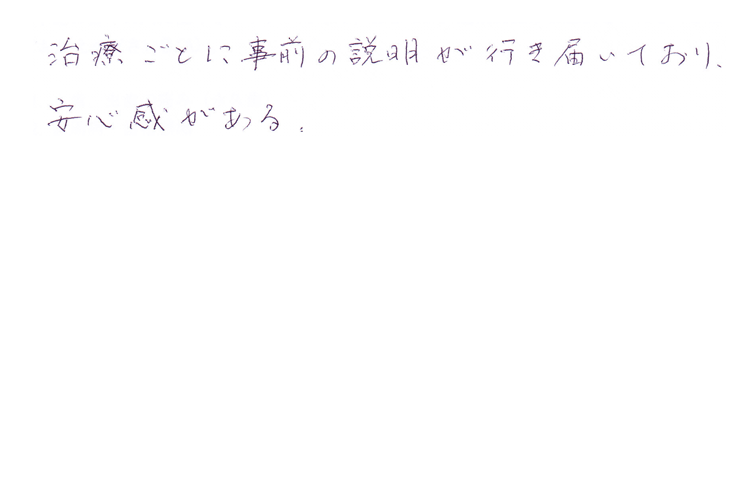 治療ごとに事前の説明が行き届いており、
安心感がある。